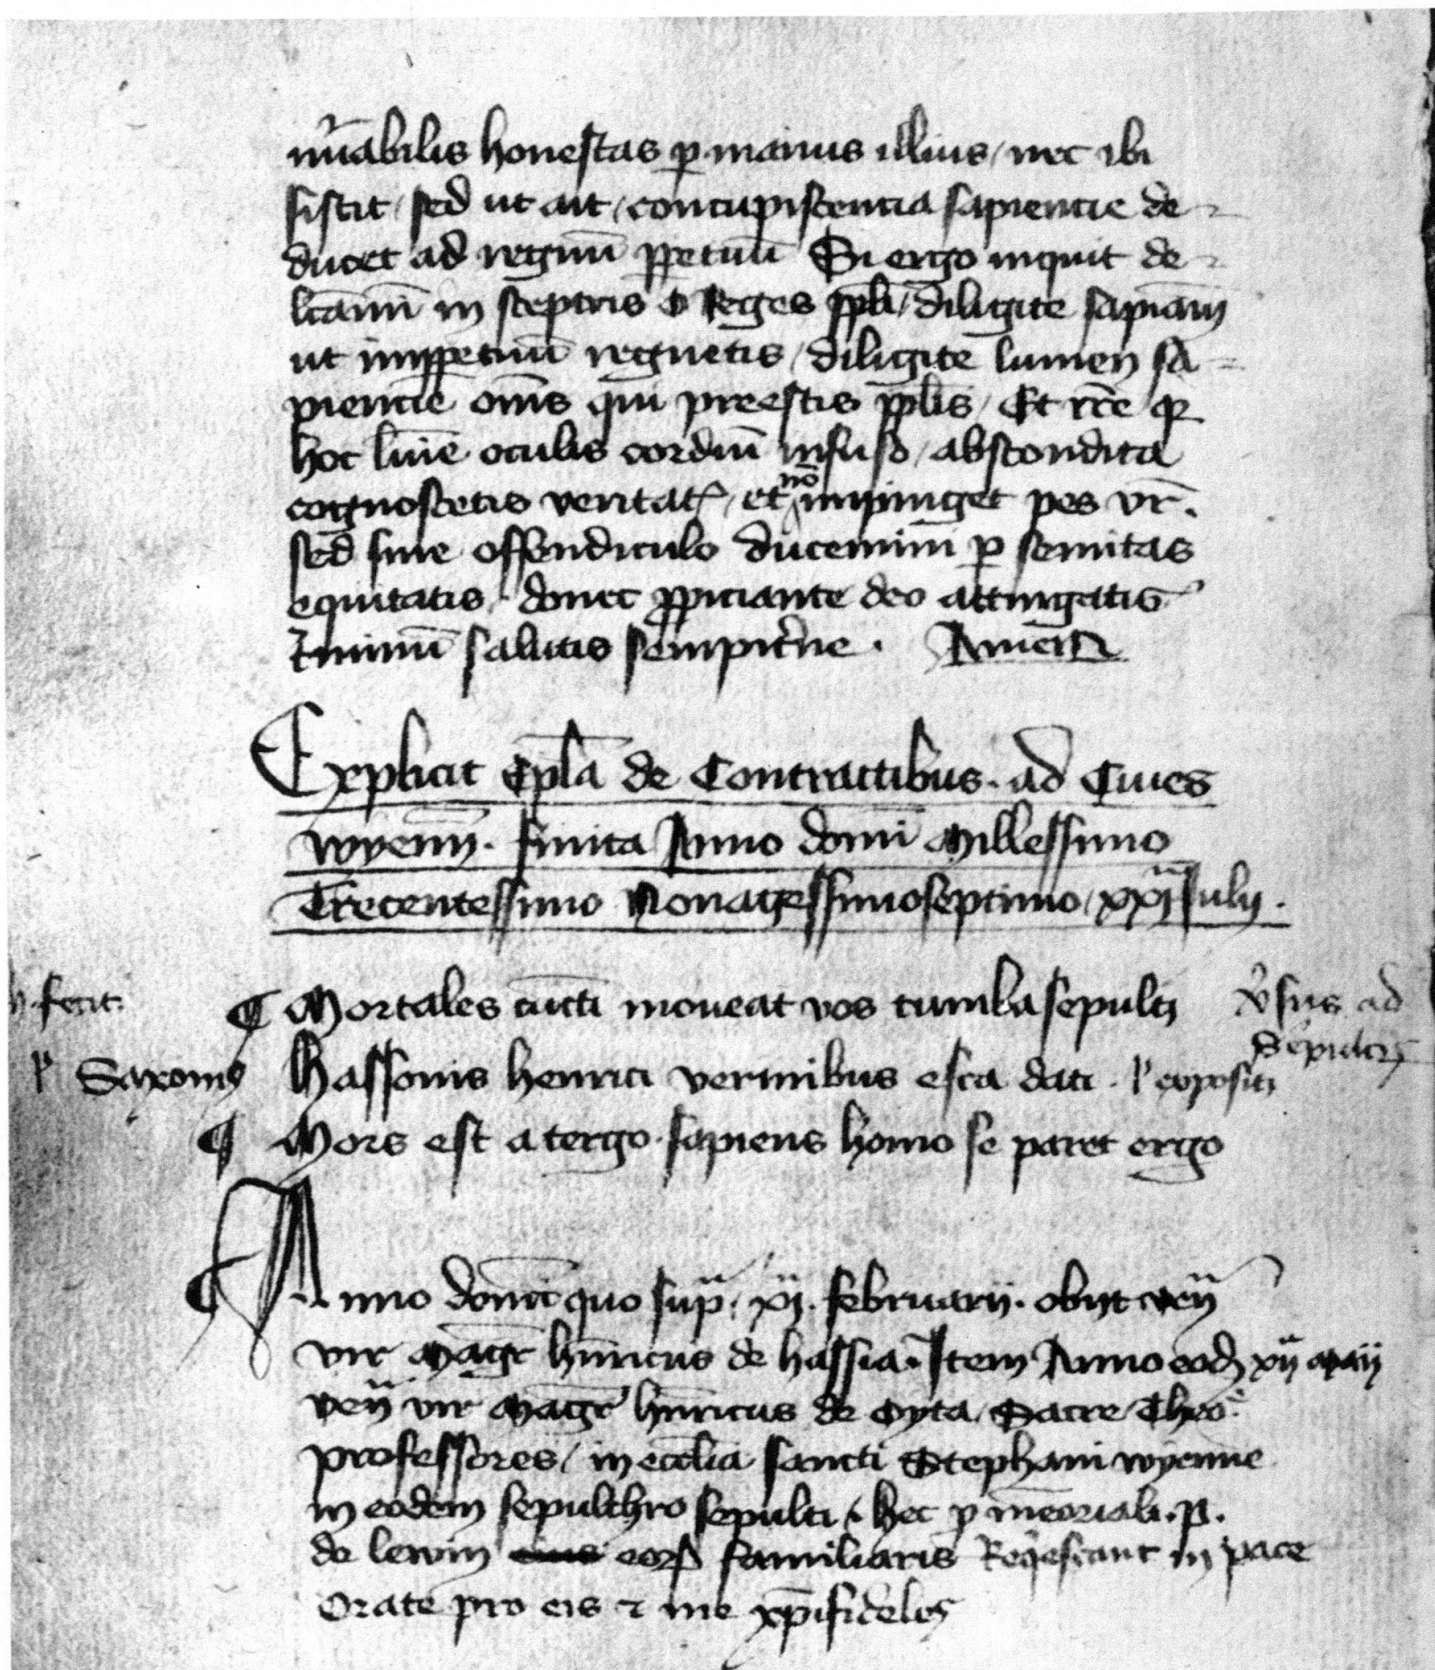 nu̅abilis honestas ꝑ manus illius / nec ibi
sistit / sed ut ait / concupiscencia sapiencie de-
ducet ad regnu̅ ꝑpetuu̅ Si ergo inquit de-
lc̅amin̅ in sceptris O Reges ppl̅i / diligite sapia̅m
ut imꝑpetuu̅ regnetis / diligite lumen sa=
piencie om̅s qui preestis ppl̅is / Et rc̅e qꝫ
hoc lu̅ie oculis cordiu̅ infuso / abscondita
cognoscetis veritatꝭ / et no̅ impinget pes vr̅.
sed sine offendiculo ducemini ꝑ semitas
equitatis / donec ꝓpiciante deo attingatis
t̾minu̅ salutis sempit̾ne . Amen
Explicit Epl̅a de Contractibus . ad Ciues
wyenn̅ . finita Anno domi̅ Millessimo
Trecentessimo Nonagessimoseptimo / xxj Julij .
fecit. ¶ Mortales cu̅cti moueat vos tumba sepulti v̾sus ad
Sepulcrꝫ
Saxonis Hassonis henrici vermibus esca dati . expositi
¶ Mors est a tergo . sapiens homo se paret ergo
¶ Anno domi̅ quo sup̅ . xj . februarij . obijt ven̅
vir Magr̅ hinricus de hassia . Item Anno eodꝫ xij maij
ven̅ vir Magr̅ hinricus de Oyta / Sacre Theo.
professores / in eccl̅ia sancti Stephani wyenne
in eodem sepulchro sepulti / hec ꝓ me̅oriali . p .
de lewin eoꝝ familiaris Reqͥescant in pace
Orate pro eis ⁊ me xp̅ifideles